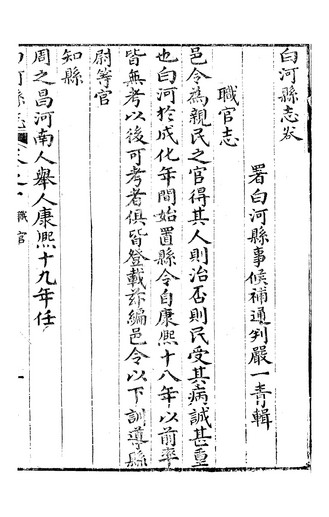 白河縣志卷
署白河縣事候補通判嚴一青輯
職官志
邑令為親民之官得其人則治否則民受其病誠甚重
也白河於成化年間始置縣令自康熙十八年以前率
皆無考以後可考者俱皆登載茲編邑令以下訓導縣
尉等官
知縣
周之昌河南人舉人康熙十九年任
白河縣志 卷之 職官 一